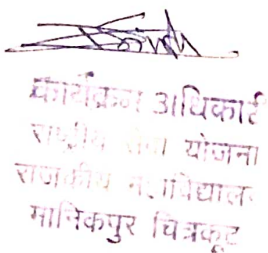 कार्यक्रम अधिकारी
राष्ट्रीय सेवा योजना
राजकीय महाविद्यालय
मानिकपुर चित्रकूट